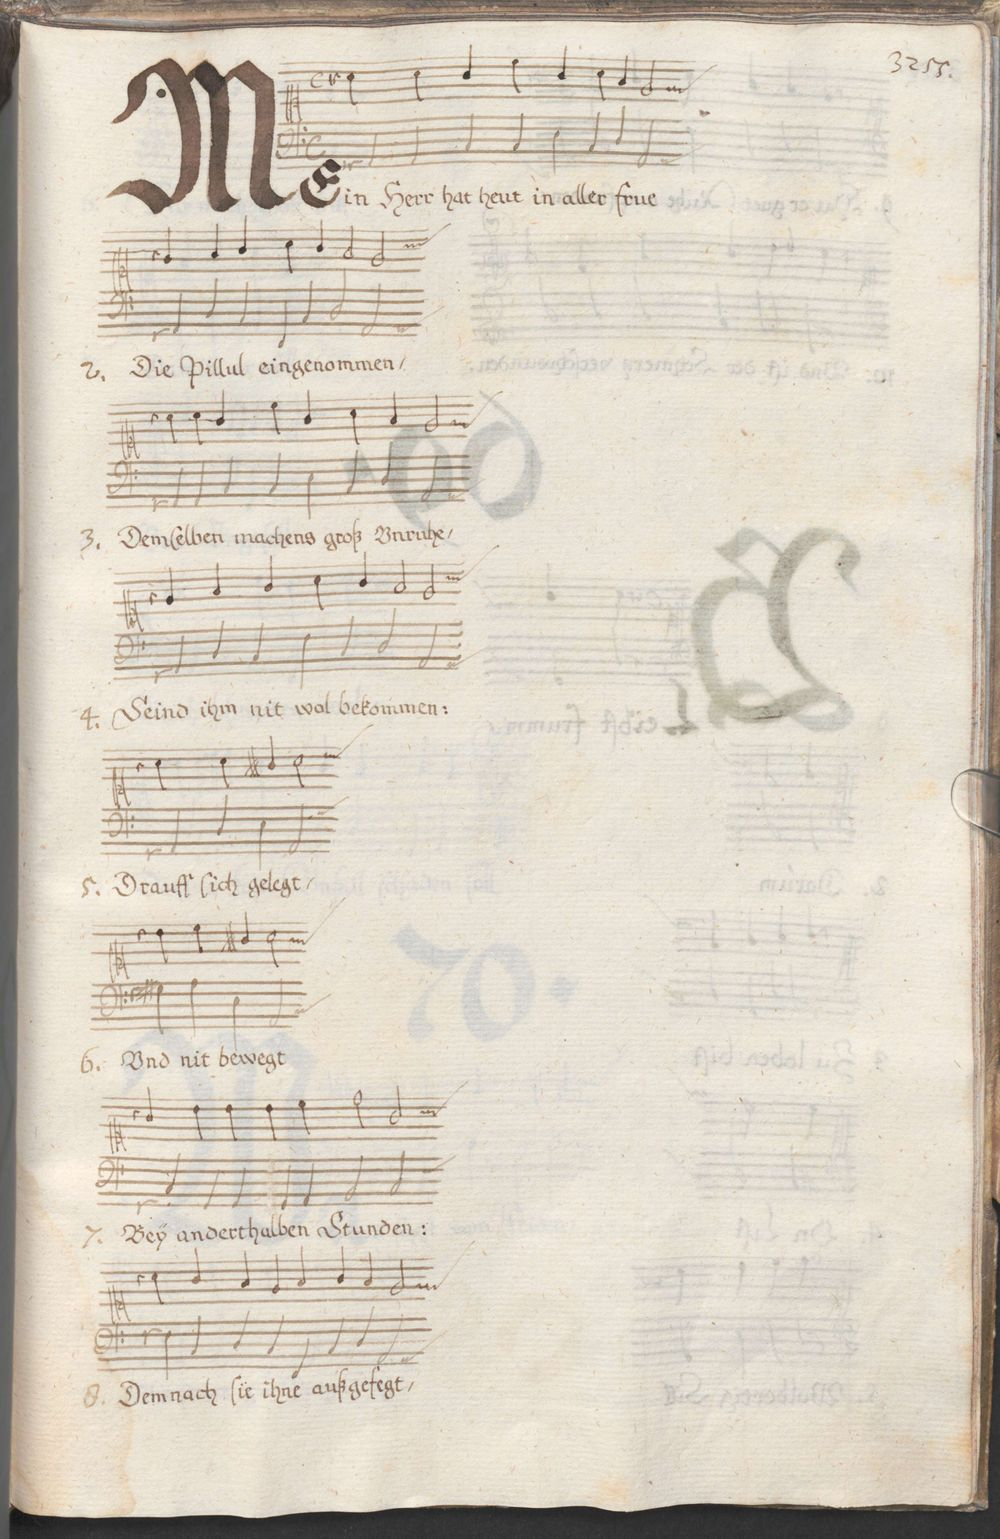 3255.
MEin Herr hat heut in aller frue
2. Die Pillul eingenommen/
3. Demselben machens groß Vnruhe/
4. Seind ihm nit wol bekommen:
5. Drauff sich gelegt/
6. Vnd nit bewegt
7. Beÿ anderthalben Stunden:
8. Demnach sie ihne außgefegt/